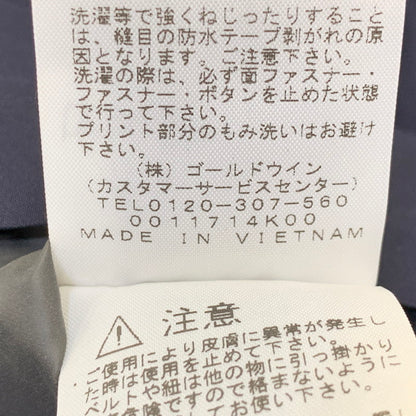 洗濯等で強くねじったりすること
は、縫目の防水テープ剥がれの原
因となります。ご注意下さい。
洗濯の際は、必ず面ファスナー・
ファスナー・ボタンを止めた状態
で行って下さい。
プリント部分のもみ洗いはお避け
下さい。
(株) ゴールドウイン
(カスタマーサービスセンター)
TEL0120-307-560
0011714K00
MADE IN VIETNAM
注意
ご使用により皮膚に異常が発生し
た時は使用を止めて下さい。
ベルトや紐は他の物に引っ掛かり
危険ですので絡まないように
してお使い下さい。